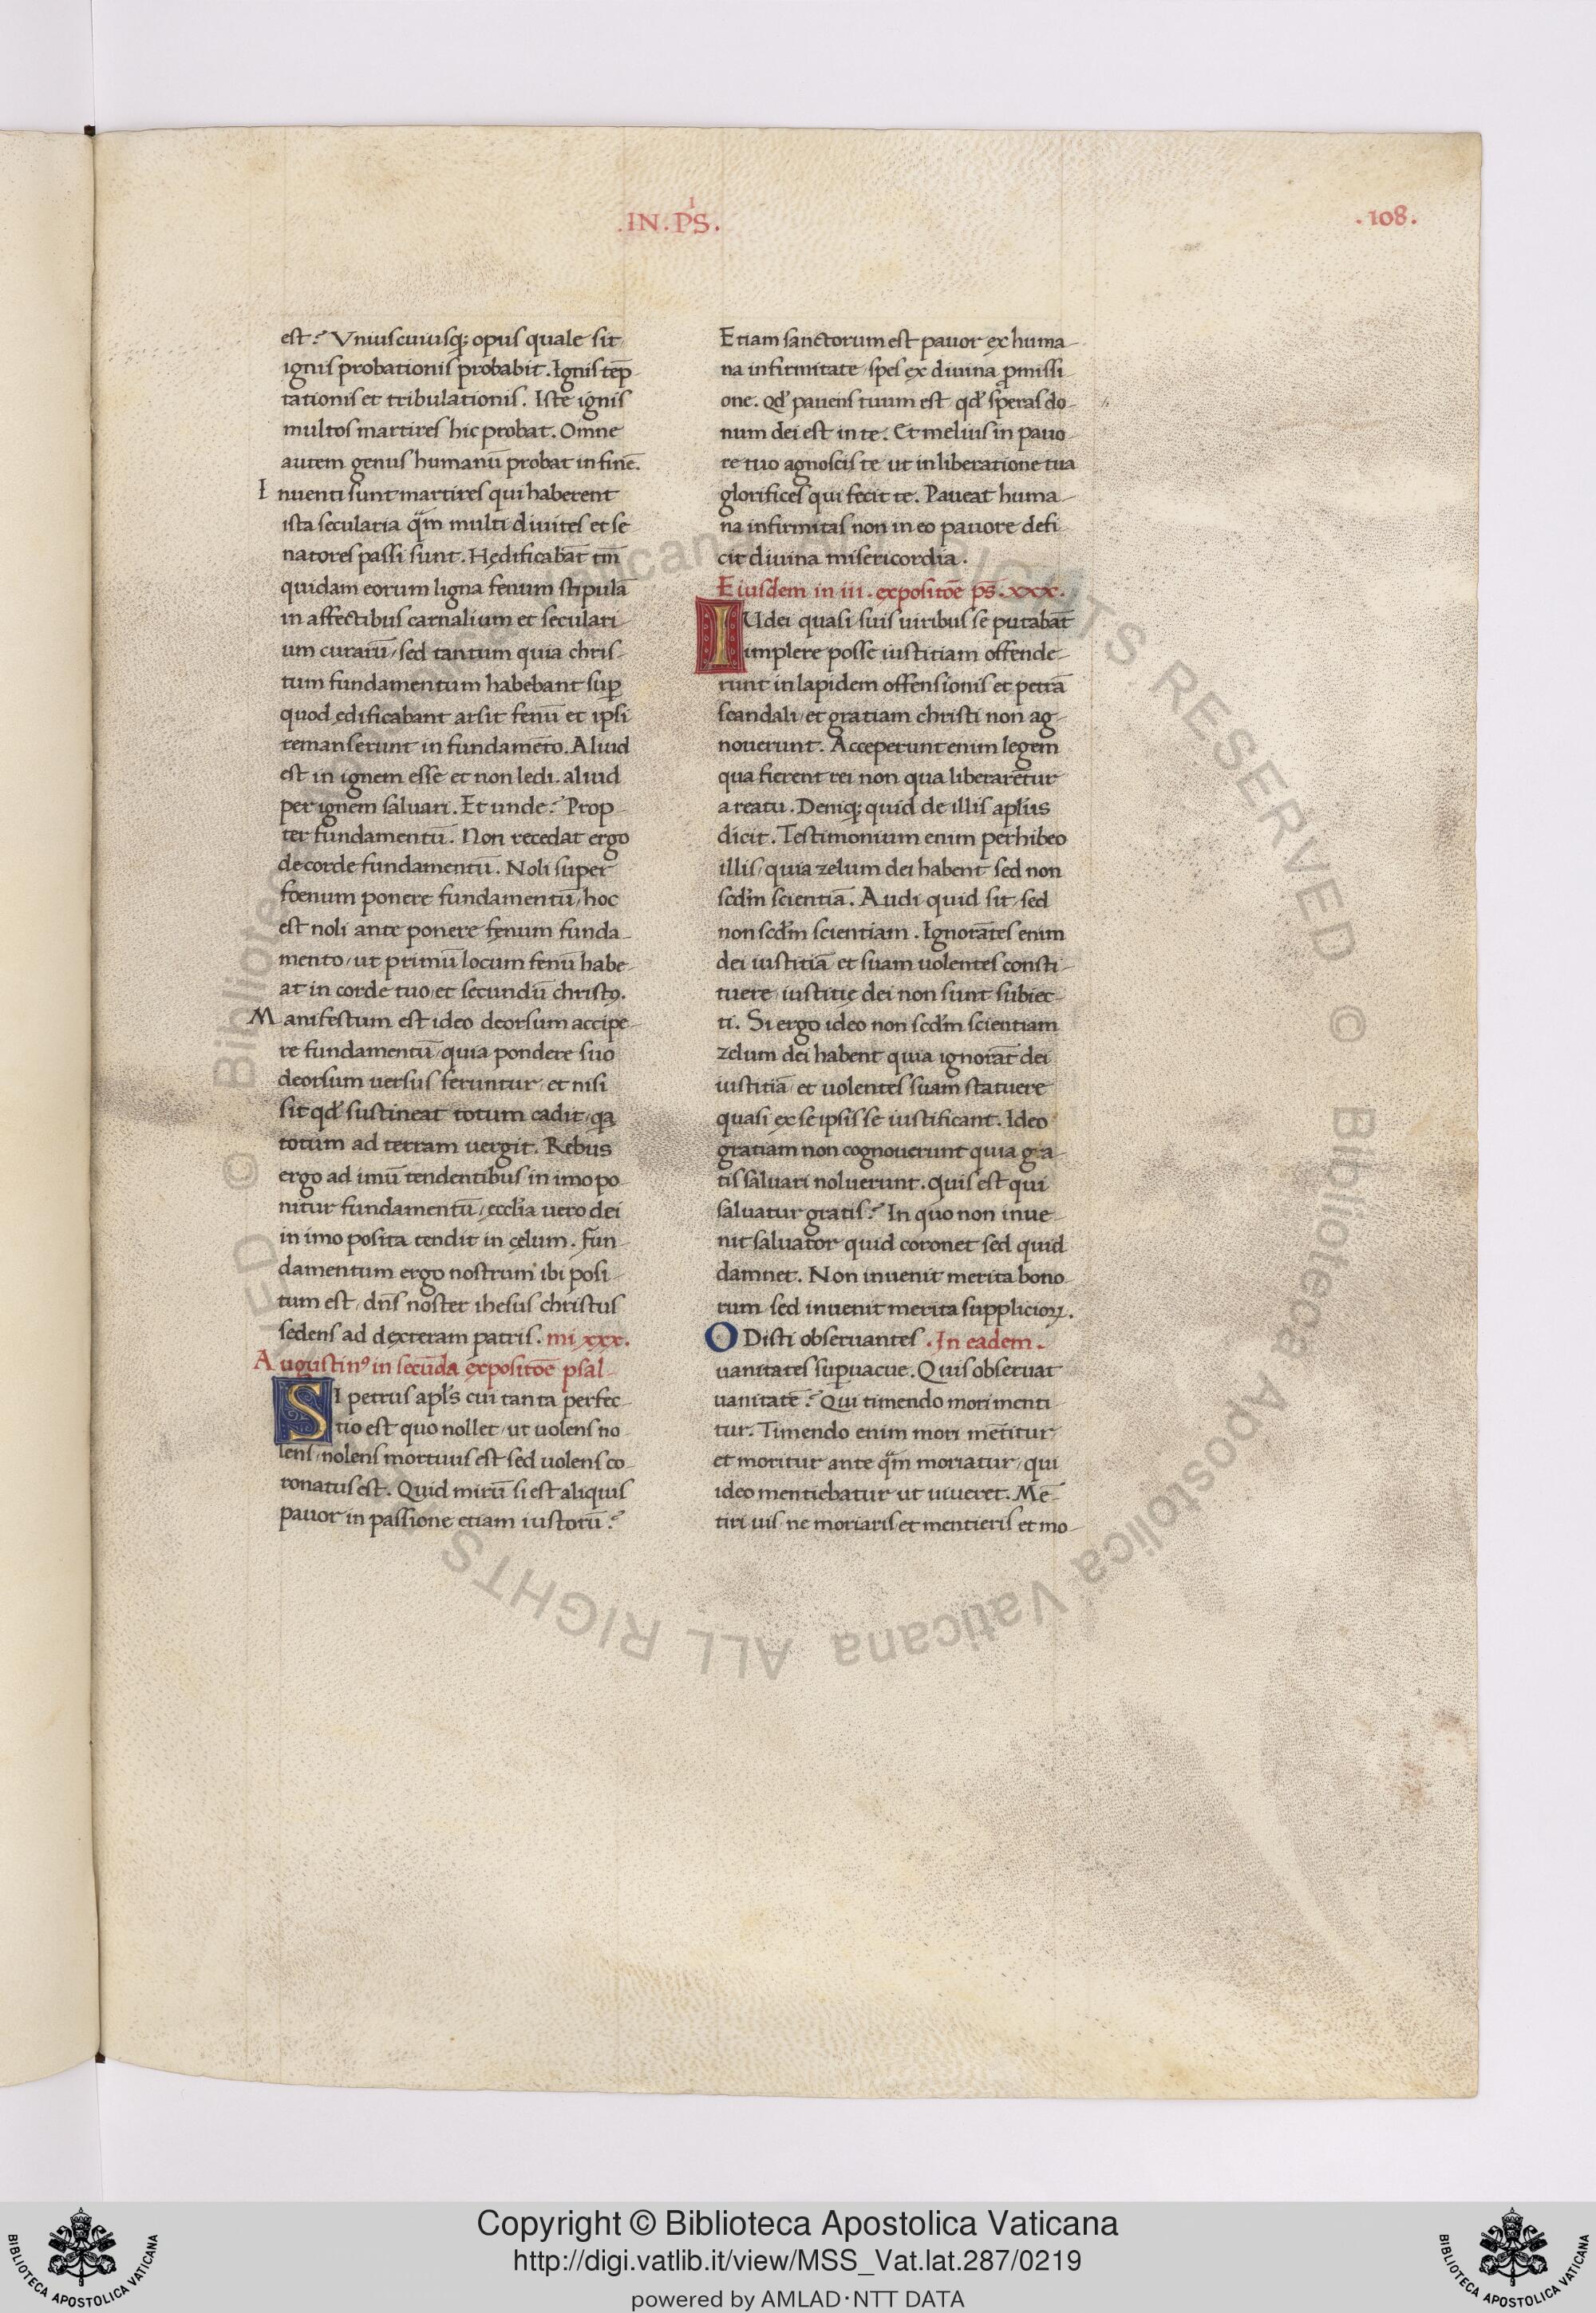 .IN.PS̄.
.108.
est? Vniuscuiusq; opus quale sit
ignis probationis probabit. Ignis tēp
tationis et tribulationis. Iste ignis
multos martires hic probat. Omne
autem genus humanū probat in fine.
Inuenti sunt martires qui haberent
ista secularia q̄m multi diuites et se
natores passi sunt. Hędificabāt tm̄
quidam eorum ligna fenum stipulā
in affectibus carnalium et seculari
um curarū, sed tantum quia chris-
tum fundamentum habebant sup̱
quod ędificabant arsit fenū et ipsi
remanserunt in fundamēto. Aliud
est in ignem esse et non ledi. aliud
per ignem saluari. Et unde? Prop
ter fundamentū. Non recedat ergo
de corde fundamentū. Noli super
foenum ponere fundamentū, hoc
est noli ante ponere fęnum funda-
mento, ut primū locum fenū habe-
at in corde tuo, et secundū christꝰ.
Manifestum est ideo deorsum accipe-
re fundamentū, quia pondere suo
deorsum uersus feruntur, et nisi
sit qd̓ sustineat totum cadit, qꝛ
totum ad terram uergit. Rebus
ergo ad imū tendentibus in imo po
nitur fundamentū, ęccl̓ia uero dei
in imo posita tendit in cęlum. Fun-
damentum ergo nostrum ibi posi-
tum est, dn̄s noster ihesus christus
sedens ad dexteram patris. mi xxx.
Augustinꝰ in secūda expositōe psal-
SI petrus apl̓s cui tanta perfec-
tio est quo nollet, ut uolens no
lens, nolens mortuus est sed uolens co-
ronatus est. Quid mirū si est aliquis
pauor in passione etiam iustorū?
Etiam sanctorum est pauor ex huma-
na infirmitate, spes ex diuina ꝓmissi
one. Qd̓ pauens tuum est, qd̓ speras do-
num dei est in te. Et melius in pauo
re tuo agnoscis te ut in liberatione tua
glorifices qui fecit te. Paueat huma-
na infirmitas non in eo pauore defi
cit diuina misericordia.
Eiusdem in iii. expositōe ps̄. xxx.
IUdei quasi suis uiribus se putabāt
implere posse iustitiam offende-
runt in lapidem offensionis et petrā
scandali, et gratiam christi non ag-
nouerunt. Acceperunt enim legem
qua fierent rei non qua liberarētur
a reatu. Deniq; quid de illis apl̓us
dicit. Testimonium enim perhibeo
illis, quia zelum dei habent sed non
scd̓m scientiā. Audi quid sit, sed
non scd̓m scientiam. Ignorātes enim
dei iustitiā et suam uolentes consti-
tuere, iustitię dei non sunt subiec-
ti. Si ergo ideo non scd̓m scientiam
zelum dei habent quia ignorāt dei
iustitiā, et uolentes suam statuere
quasi ex se ipsis se iustificant. Ideo
gratiam non cognouerunt quia gra-
tis saluari noluerunt. quis est qui
saluatur gratis? In quo non inue-
nit saluator quid coronet sed quid
damnet. Non inuenit merita bono
rum sed inuenit merita supplicioꝝ.
ODisti obseruantes .In eadem.
uanitates suꝑuacue. Quis obseruat
uanitatē? Qui timendo mori menti
tur. Timendo enim mori mētitur
et moritur ante q̄m moriatur, qui
ideo mentiebatur ut uiueret. Me-
tiri uis, ne moriaris, et mentieris et mo-
© Biblioteca Apostolica Vaticana ALL RIGHTS RESERVED
Copyright © Biblioteca Apostolica Vaticana
http://digi.vatlib.it/view/MSS_Vat.lat.287/0219
powered by AMLAD·NTT DATA
BIBLIOTECA APOSTOLICA VATICANA
BIBLIOTECA APOSTOLICA VATICANA